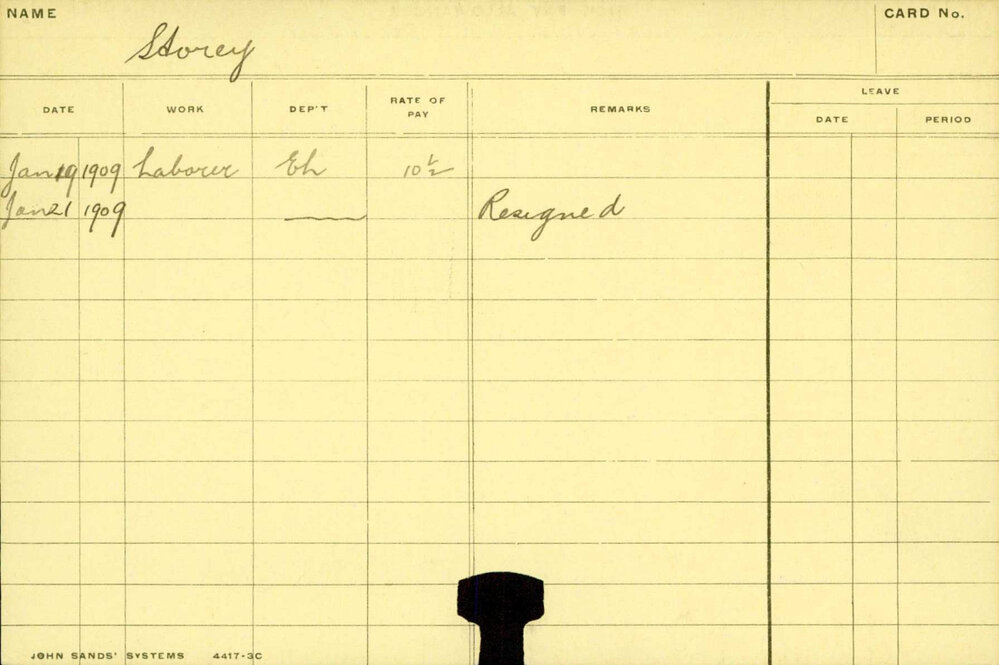 NAME
CARD No.
Storey
LEAVE
DATE WORK DEP'T RATE OF PAY REMARKS DATE PERIOD
Jan 19 1909 Laborer Eh 10 1/2
Jan 21 1909 Resigned
JOHN SANDS' SYSTEMS 4417-3C